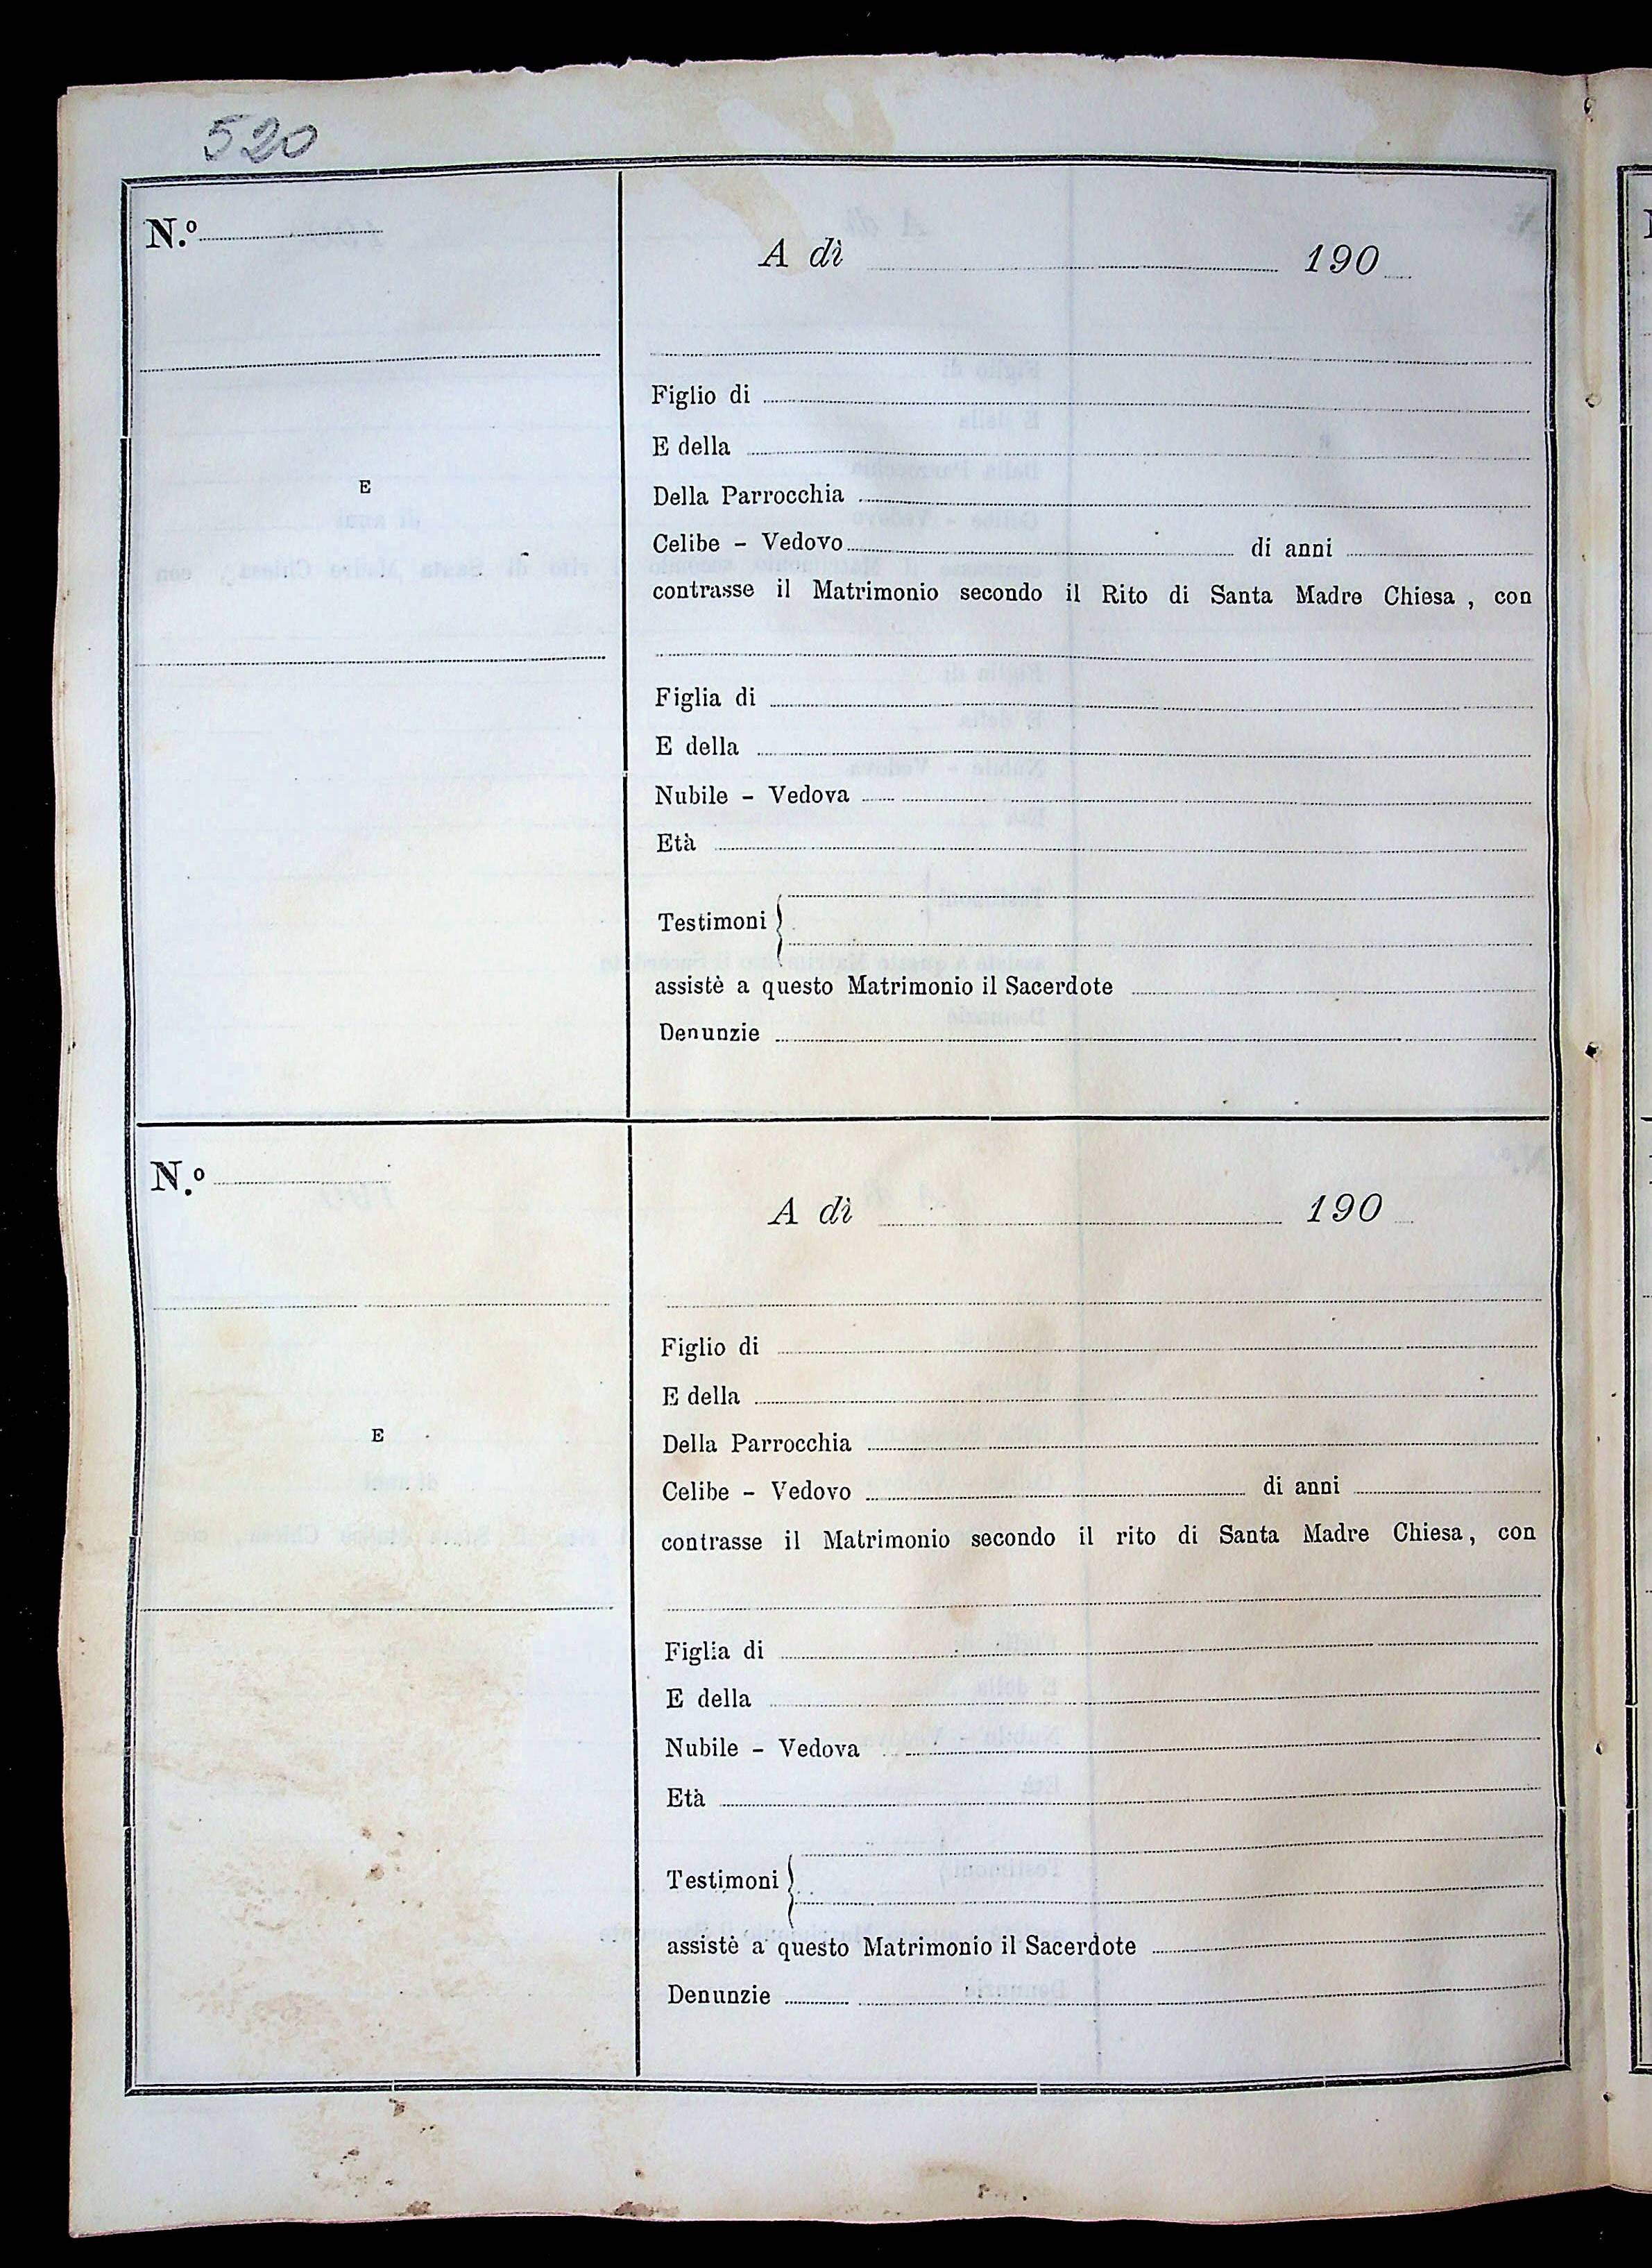 520
N.º
A dì 190
Figlio di
E della
E
Della Parrocchia
Celibe - Vedovo di anni
contrasse il Matrimonio secondo il Rito di Santa Madre Chiesa , con
Figlia di
E della
Nubile - Vedova
Età
Testimoni
assistè a questo Matrimonio il Sacerdote
Denunzie
N.º
A dì 190
Figlio di
E della
E
Della Parrocchia
Celibe - Vedovo di anni
contrasse il Matrimonio secondo il rito di Santa Madre Chiesa, con
Figlia di
E della
Nubile - Vedova
Età
Testimoni
assistè a questo Matrimonio il Sacerdote
Denunzie